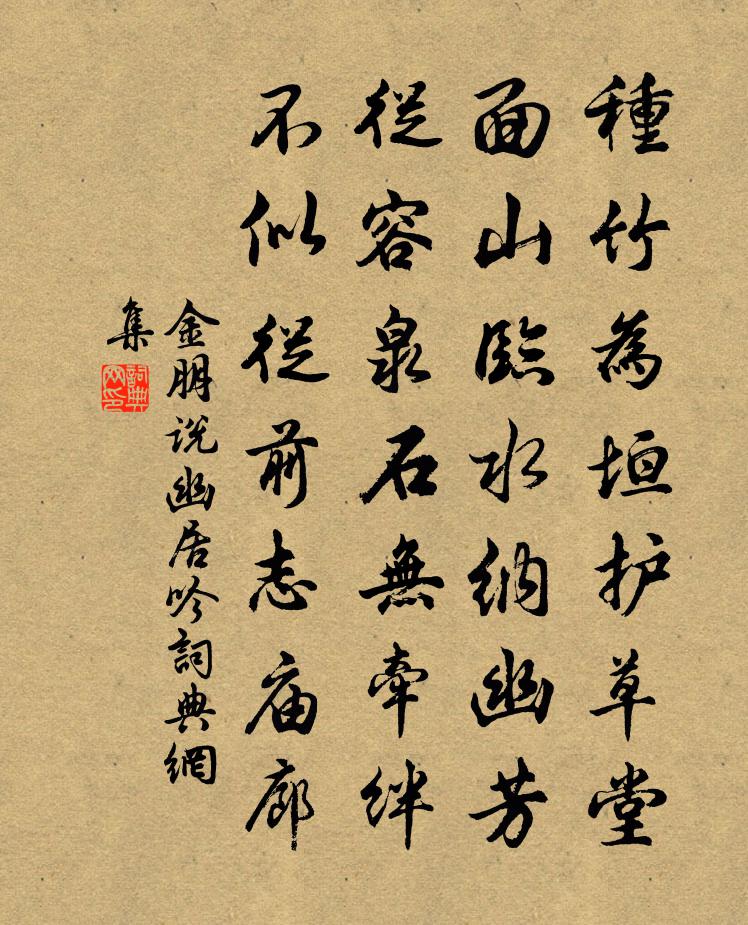 種竹為垣护草堂
面山臨水納幽芳
從容泉石無牽絆
不似從前志庙廊
金朋说幽居吟詞典網
集
詞典
网印